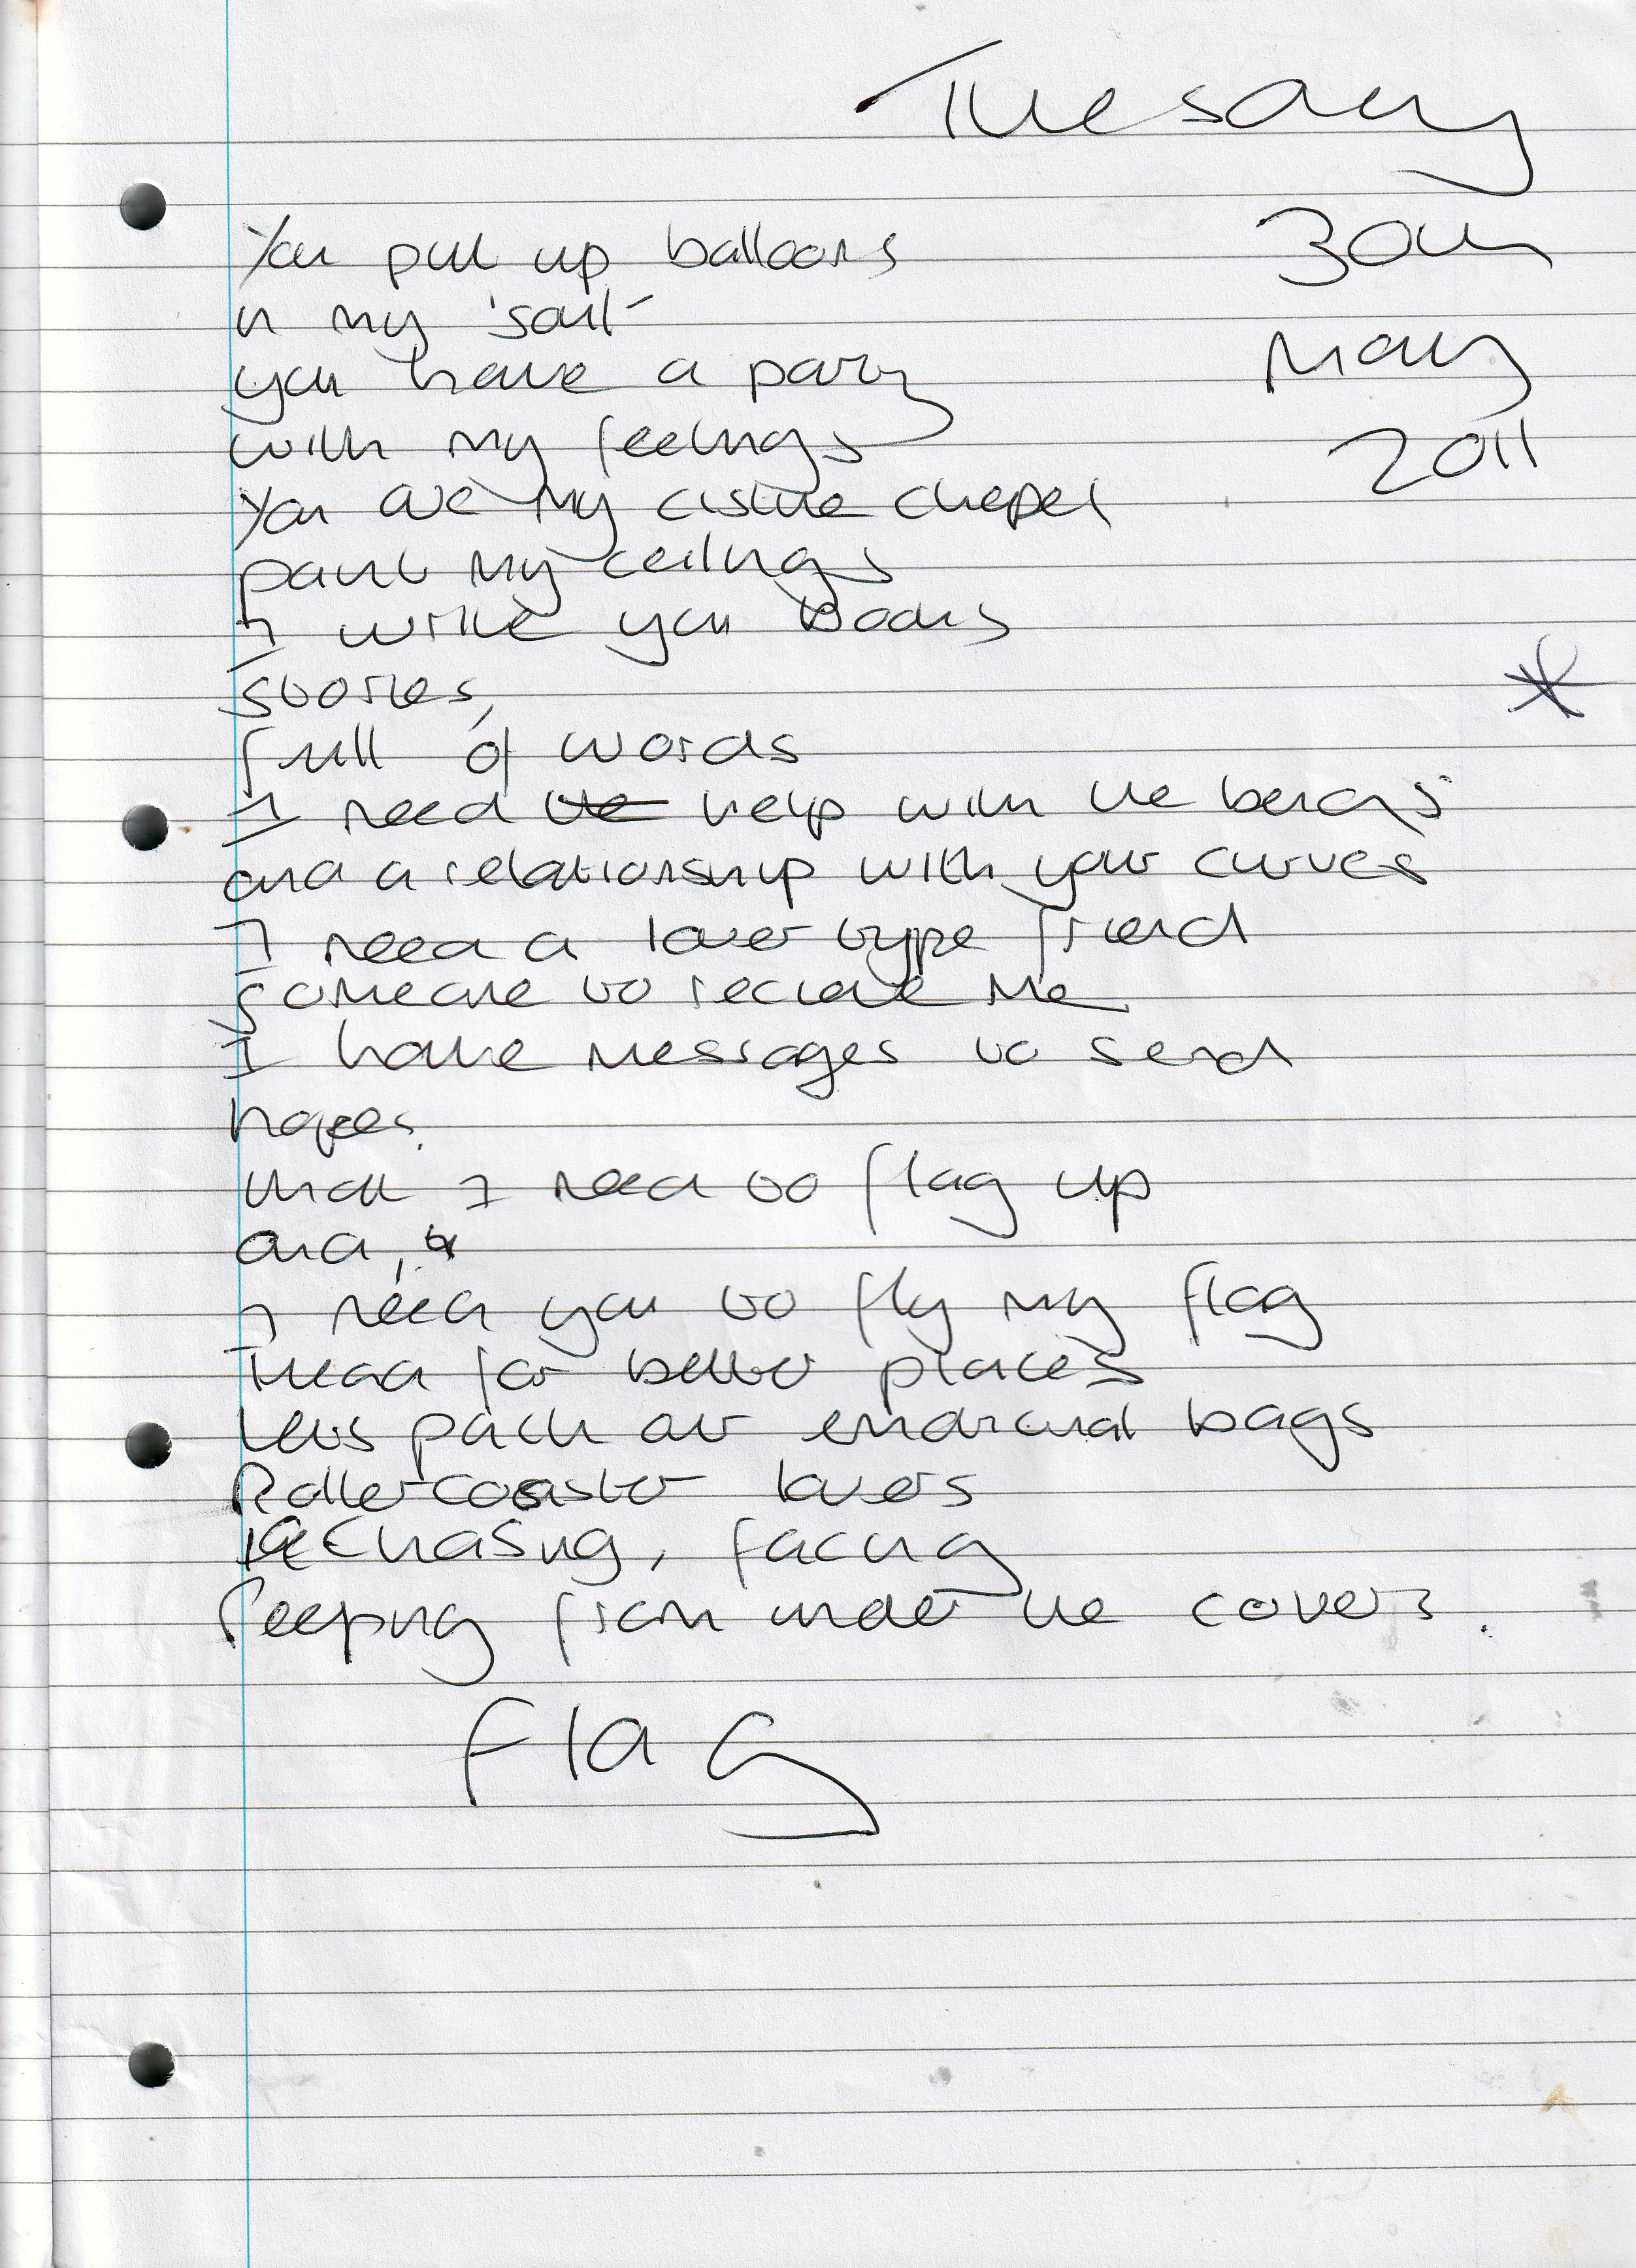 Tuesday
30th
May
2011
You put up balloons
in my 'soul'
you have a party
with my feelings
You are my cistine chepel
paint my ceilings
I write you books
stories,
full of words
I need the help with the bends
and a relationship with your curves
I need a lover type friend
someone to recieve me
I have messages to send
hopes.
that I need to flag up
and,
I need you to fly my flag
Head for better places
Lets pack our emotional bags
Rollercoaster lovers
Chasing, facing
Peeping from under the covers.
Flag